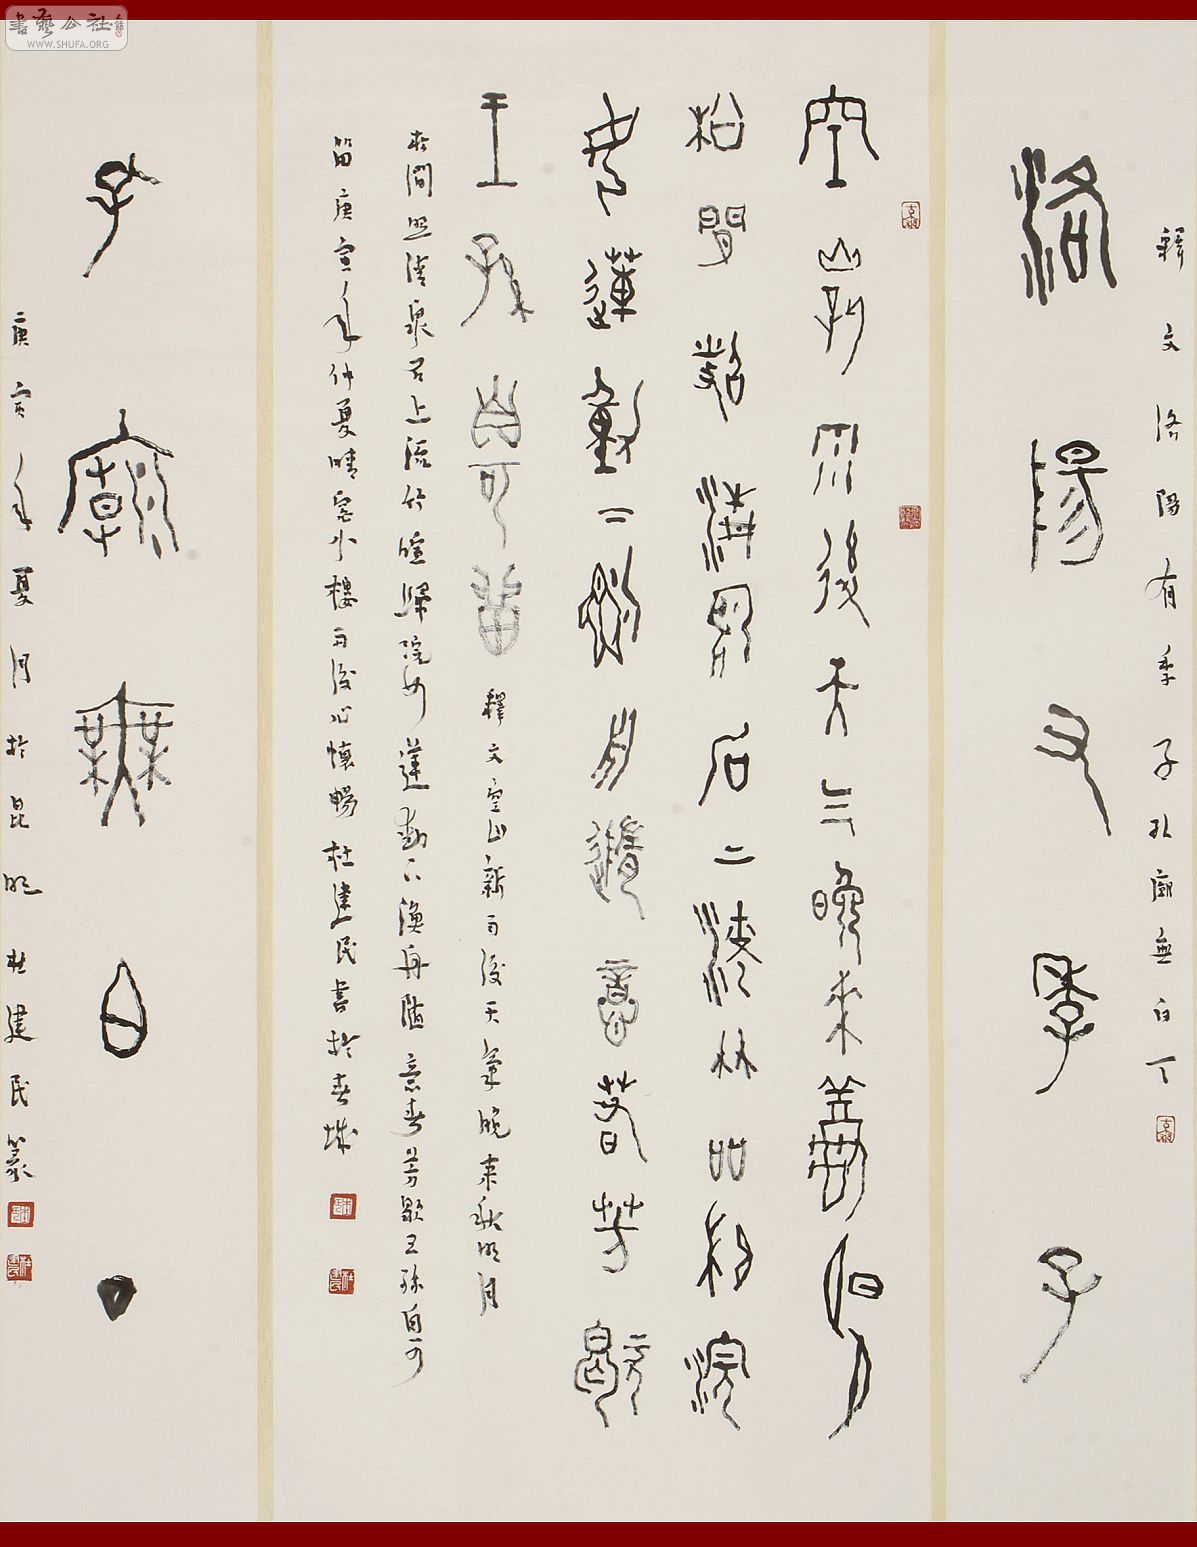 書藝公社
WWW.SHUFA.ORG
釋文洛陽有季子孔廟無白丁
洛陽又季子
空山新雨後天气晚來秋明月
松間照清泉石上流竹喧歸浣
女蓮動下漁舟隨意春芳歇
王孫自可留 釋文空山新雨後天氣晚來秋明月
松間照清泉石上流竹喧歸浣女蓮動下漁舟隨意春芳歇王孫自可
留庚寅年仲夏晴窗小樓雨後心懷暢杜建民書於春城
孔廟無白丁
庚寅年夏月於昆明杜建民篆